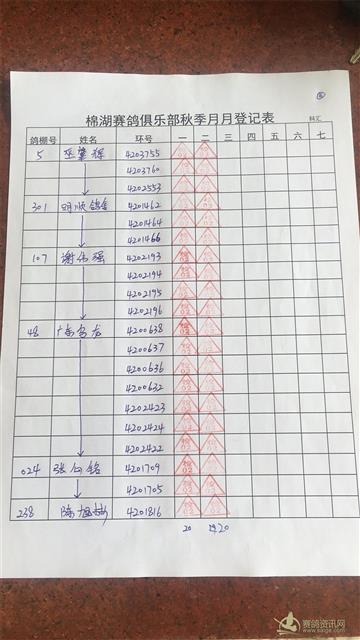 棉湖赛鸽俱乐部秋季月月登记表 科汇
鸽棚号 姓名 环号 一 二 三 四 五 六 七
5 4203755
4203760
4202553
301 明顺鸽舍 4201462
4201464
4201466
107 谢伟强 4202193
4202194
4202195
4202196
48 4200638
4200637
4200636
4200632
4202423
4202424
4202422
024 张向铭 4201709
4201705
238 陈旭彬 4201816
20 20
赛鸽资讯网
www.saige.com